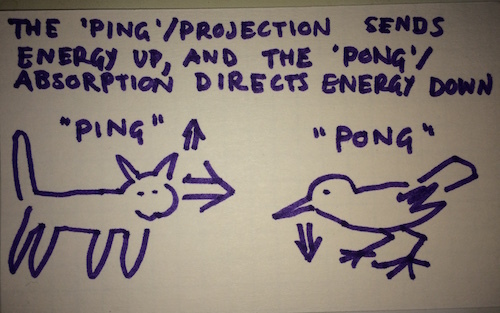 THE 'PING'/PROJECTION SENDS
ENERGY UP, AND THE 'PONG'/
ABSORPTION DIRECTS ENERGY DOWN
"PING"
"PONG"